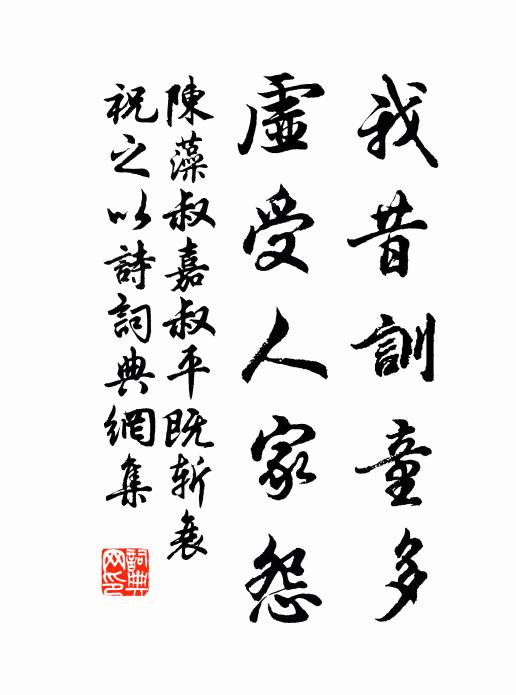 我昔訓童多
虛受人家怨
陳藻叔嘉叔平既斬衰
祝之以詩詞典網集
詞典網印